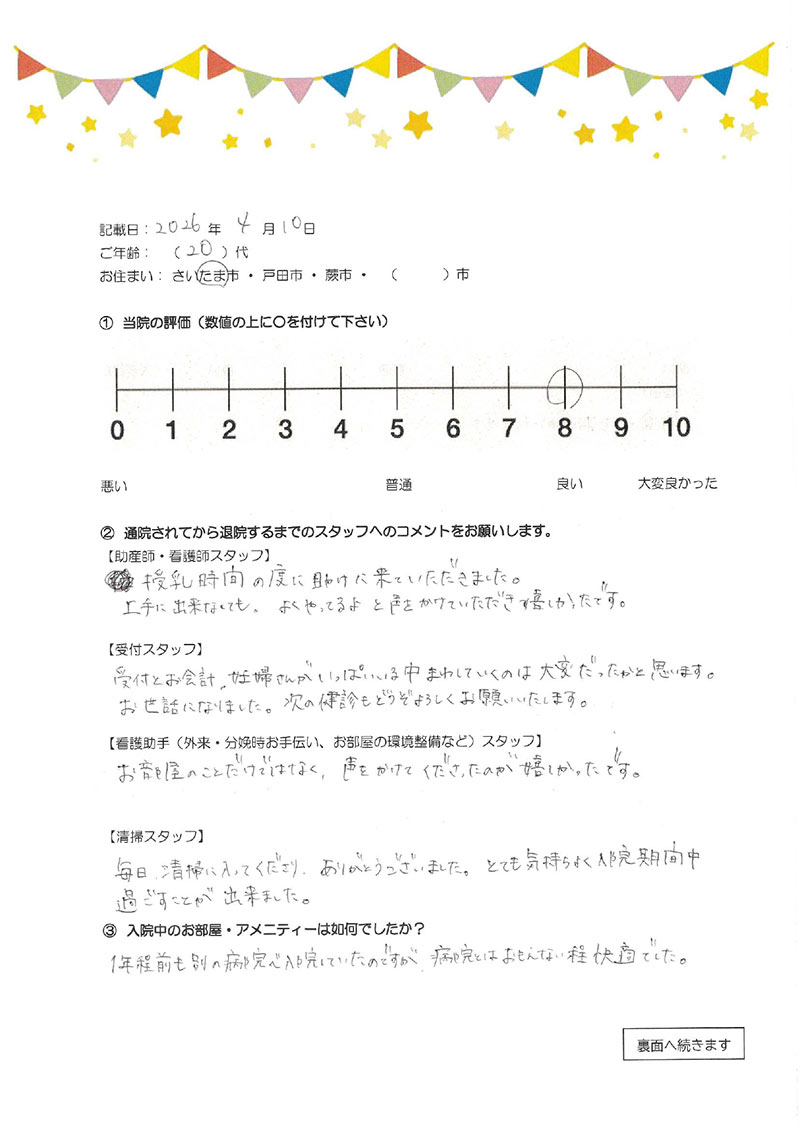 記載日：2026年 4月10日
ご年齢：（20）代
お住まい：さいたま市・戸田市・蕨市・（　　　）市
① 当院の評価（数値の上に〇を付けて下さい）
0 1 2 3 4 5 6 7 8 9 10
悪い 普通 良い 大変良かった
② 通院されてから退院するまでのスタッフへのコメントをお願いします。
【助産師・看護師スタッフ】
授乳時間の度に助けに来ていただきました。
上手に出来なくても、よくやってるよと声をかけていただき嬉しかったです。
【受付スタッフ】
受付とお会計、妊婦さんがいっぱいいる中まわしていくのは大変だったかと思います。
お世話になりました。次の健診もどうぞよろしくお願いいたします。
【看護助手（外来・分娩時お手伝い、お部屋の環境整備など）スタッフ】
お部屋のことだけではなく、声をかけてくださったのが嬉しかったです。
【清掃スタッフ】
毎日、清掃に入ってくださり、ありがとうございました。とても気持ちよく入院期間中
過ごすことが出来ました。
③ 入院中のお部屋・アメニティーは如何でしたか？
1年程前も別の病院へ入院していたのですが、病院とはおもえない程快適でした。
裏面へ続きます